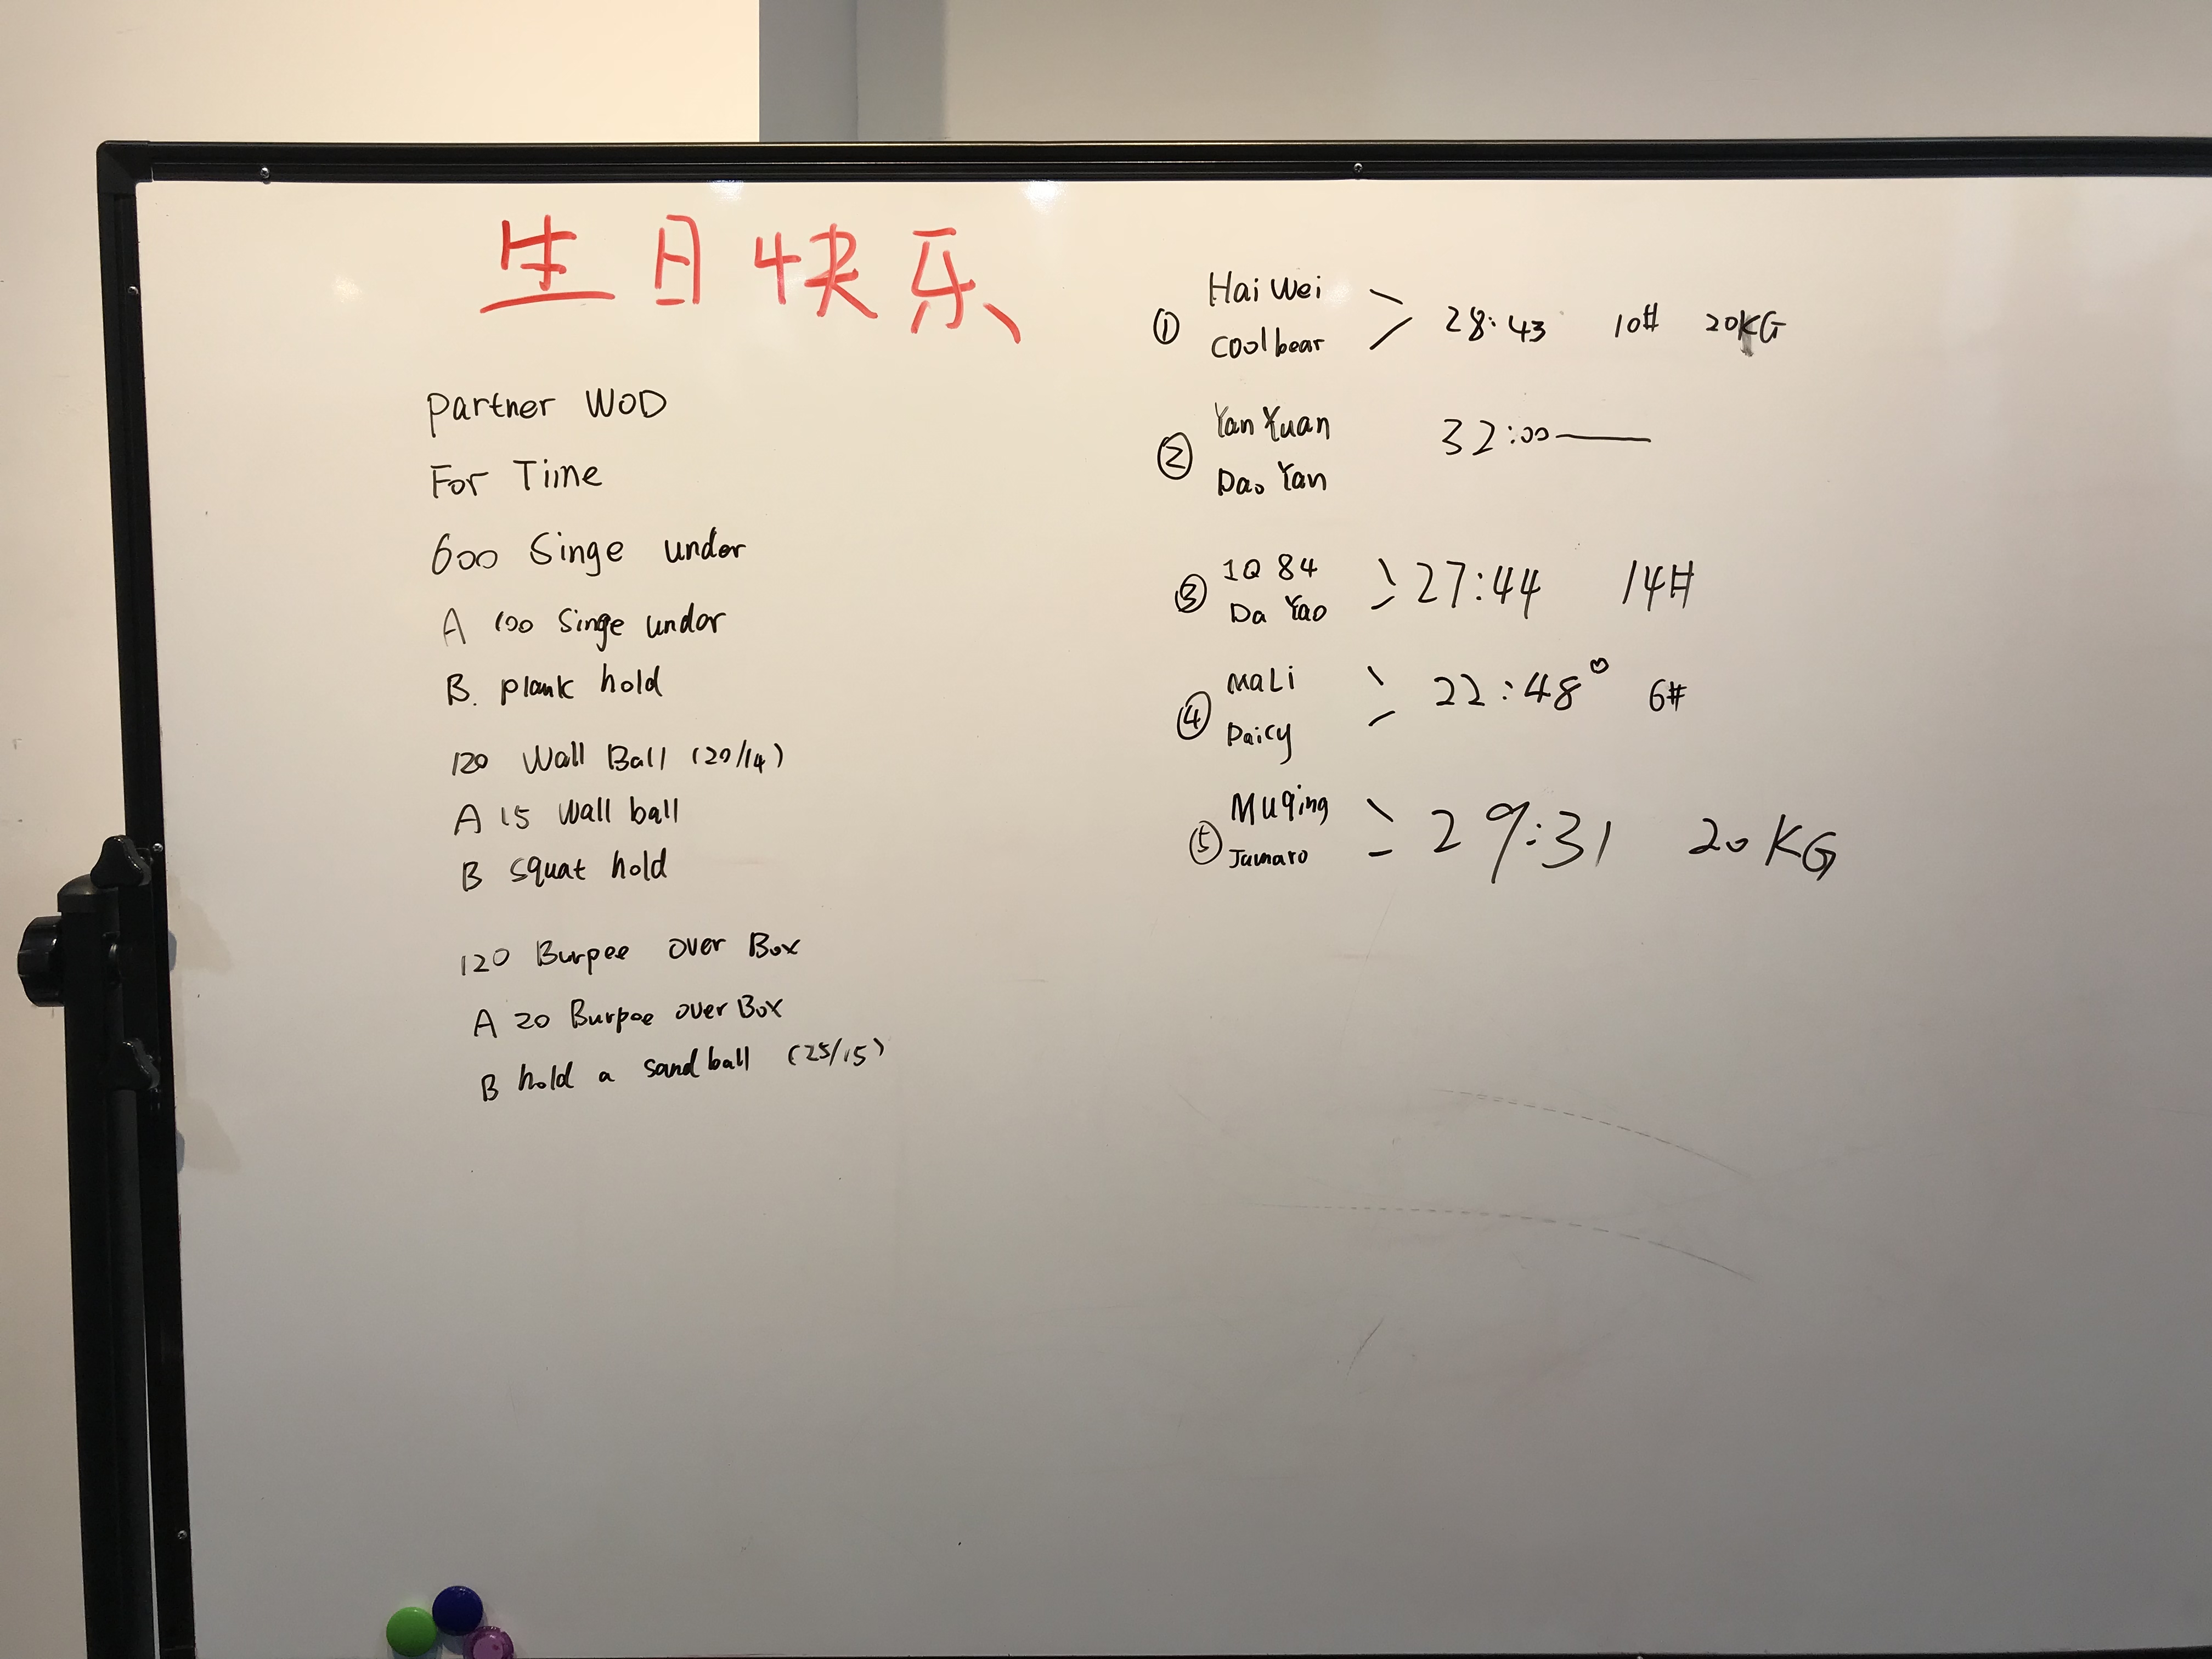 生日快乐
Partner WOD
For Time
600 Singe under
A 100 Singe under
B. plank hold
120 Wall Ball (20/14)
A 15 Wall ball
B squat hold
120 Burpee over Box
A 20 Burpee over Box
B hold a sand ball (25/15)
① Hai Wei
Cool bear
28:43 10# 20KG
② Yan Xuan
Dao Yan
32:00
③ 1Q84
Da Yao
27:44 14#
④ MaLi
Daicy
22:48 6#
⑤ MuQing
Jumaro
29:31 20KG